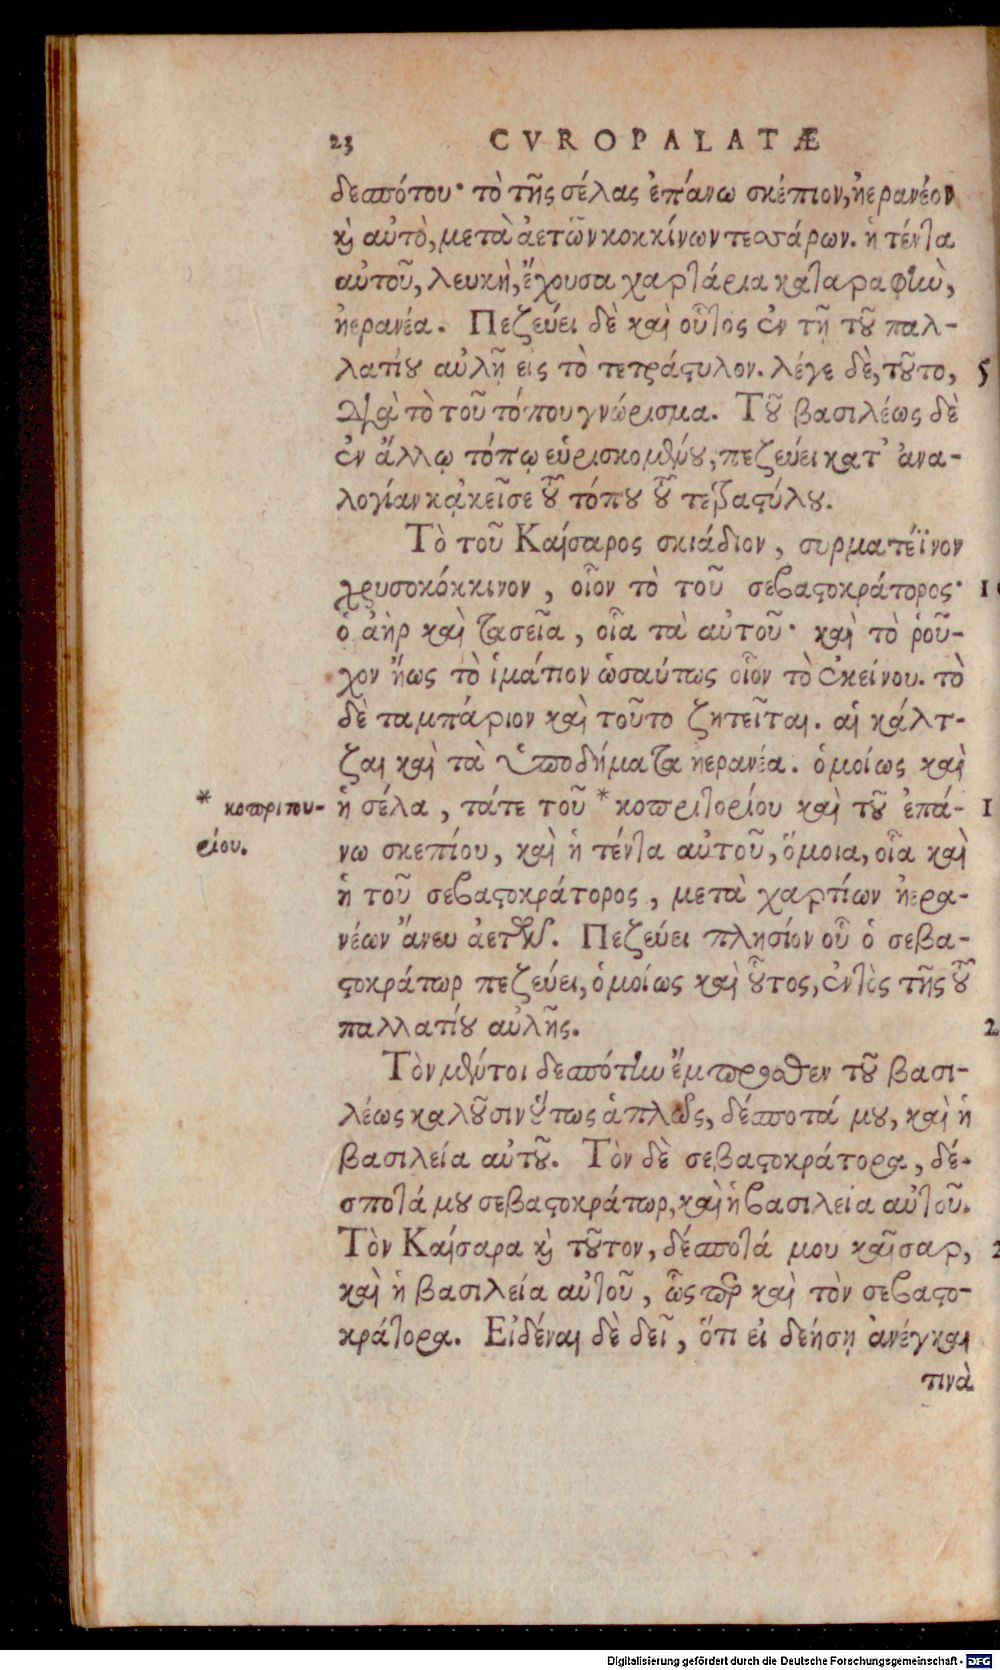 23 CVROPALATÆ
δεσπότου· τὸ τῆς σέλας ἐπάνω σκέπιον, ἠερανέον
καὶ αὐτὸ, μετὰ ἀετῶν κοκκίνων τεσσάρων. ἡ τέντα
αὐτοῦ, λευκὴ, ἔχουσα χαρτάρια καταραφὴν,
ἠερανέα. Πεζεύει δὲ καὶ οὗτος ἐν τῇ τοῦ παλ-
λατίου αὐλῇ εἰς τὸ τετράστυλον. λέγε δὲ, τοῦτο, 5
διὰ τὸ τοῦ τόπου γνώρισμα. Τοῦ βασιλέως δὲ
ἐν ἄλλῳ τόπῳ εὑρισκομένου, πεζεύει κατ' ἀνα-
λογίαν κᾀκεῖσε τοῦ τόπου τοῦ τετραστύλου.
Τὸ τοῦ Καίσαρος σκιάδιον, συρματέϊνον
χρυσοκόκκινον, οἷον τὸ τοῦ σεβαστοκράτορος· 1
ὁ ἀὴρ καὶ τασεῖα, οἷα τὰ αὐτοῦ· καὶ τὸ ῥοῦ-
χον ἤως τὸ ἱμάτιον ὡσαύτως οἷον τὸ ἐκείνου. τὸ
δὲ ταμπάριον καὶ τοῦτο ζητεῖται. αἱ κάλτ-
ζαι καὶ τὰ ὑποδήματα ἠερανέα. ὁμοίως καὶ
* κοπριτου- ἡ σέλα, τάτε τοῦ * κοπριτορίου καὶ τοῦ ἐπά- 1
ρίου. νω σκεπίου, καὶ ἡ τέντα αὐτοῦ, ὅμοια, οἷα καὶ
ἡ τοῦ σεβαστοκράτορος, μετὰ χαρτίων ἠερα-
νέων ἄνευ ἀετῶν. Πεζεύει πλησίον οὗ ὁ σεβα-
στοκράτωρ πεζεύει, ὁμοίως καὶ οὗτος, ἐντὸς τῆς τοῦ
παλλατίου αὐλῆς. 2
Τὸν μέντοι δεσπότην ἔμπροσθεν τοῦ βασι-
λέως καλοῦσιν οὕτως ἁπλῶς, δέσποτά μου, καὶ ἡ
βασιλεία αὐτοῦ. Τὸν δὲ σεβαστοκράτορα, δέ-
σποτά μου σεβαστοκράτωρ, καὶ ἡ βασιλεία αὐτοῦ.
Τὸν Καίσαρα καὶ τοῦτον, δέσποτά μου καῖσαρ, 2
καὶ ἡ βασιλεία αὐτοῦ, ὥσπερ καὶ τὸν σεβαστο-
κράτορα. Εἰδέναι δὲ δεῖ, ὅτι εἰ δεήσῃ ἀνέγκαι
τινὰ
Digitalisierung gefördert durch die Deutsche Forschungsgemeinschaft - DFG